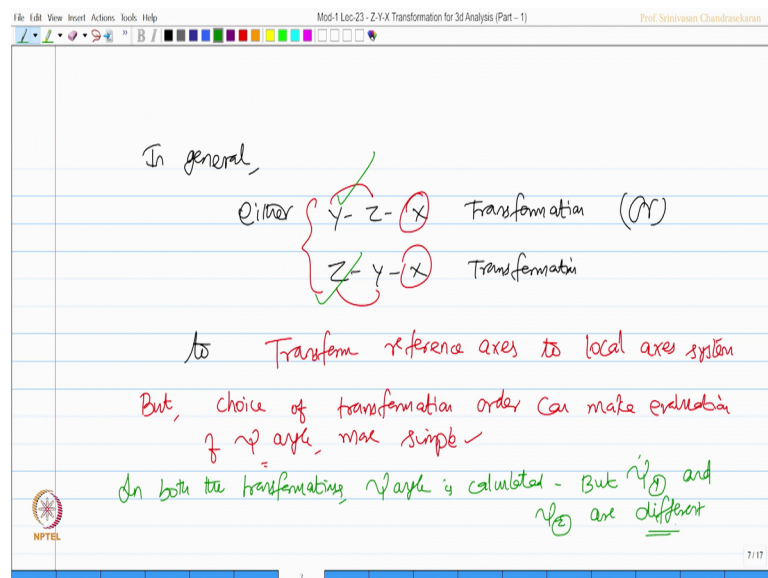 File Edit View Insert Actions Tools Help
Mod-1 Loc-23 - Z-Y-X Transformation for 3d Analysis (Part – 1)
Prof. Srinivasan Chandrasekaran
B I
In general,
either { Y - Z - X Transformation (Or)
Z - Y - X Transformatin
to Transform reference axes to local axes system
But, choice of transformation order can make evaluation
of ψ angle, more simple
In both the transformations, ψ angle is calculated - But ψ① and
ψ② are different
NPTEL
7 / 17